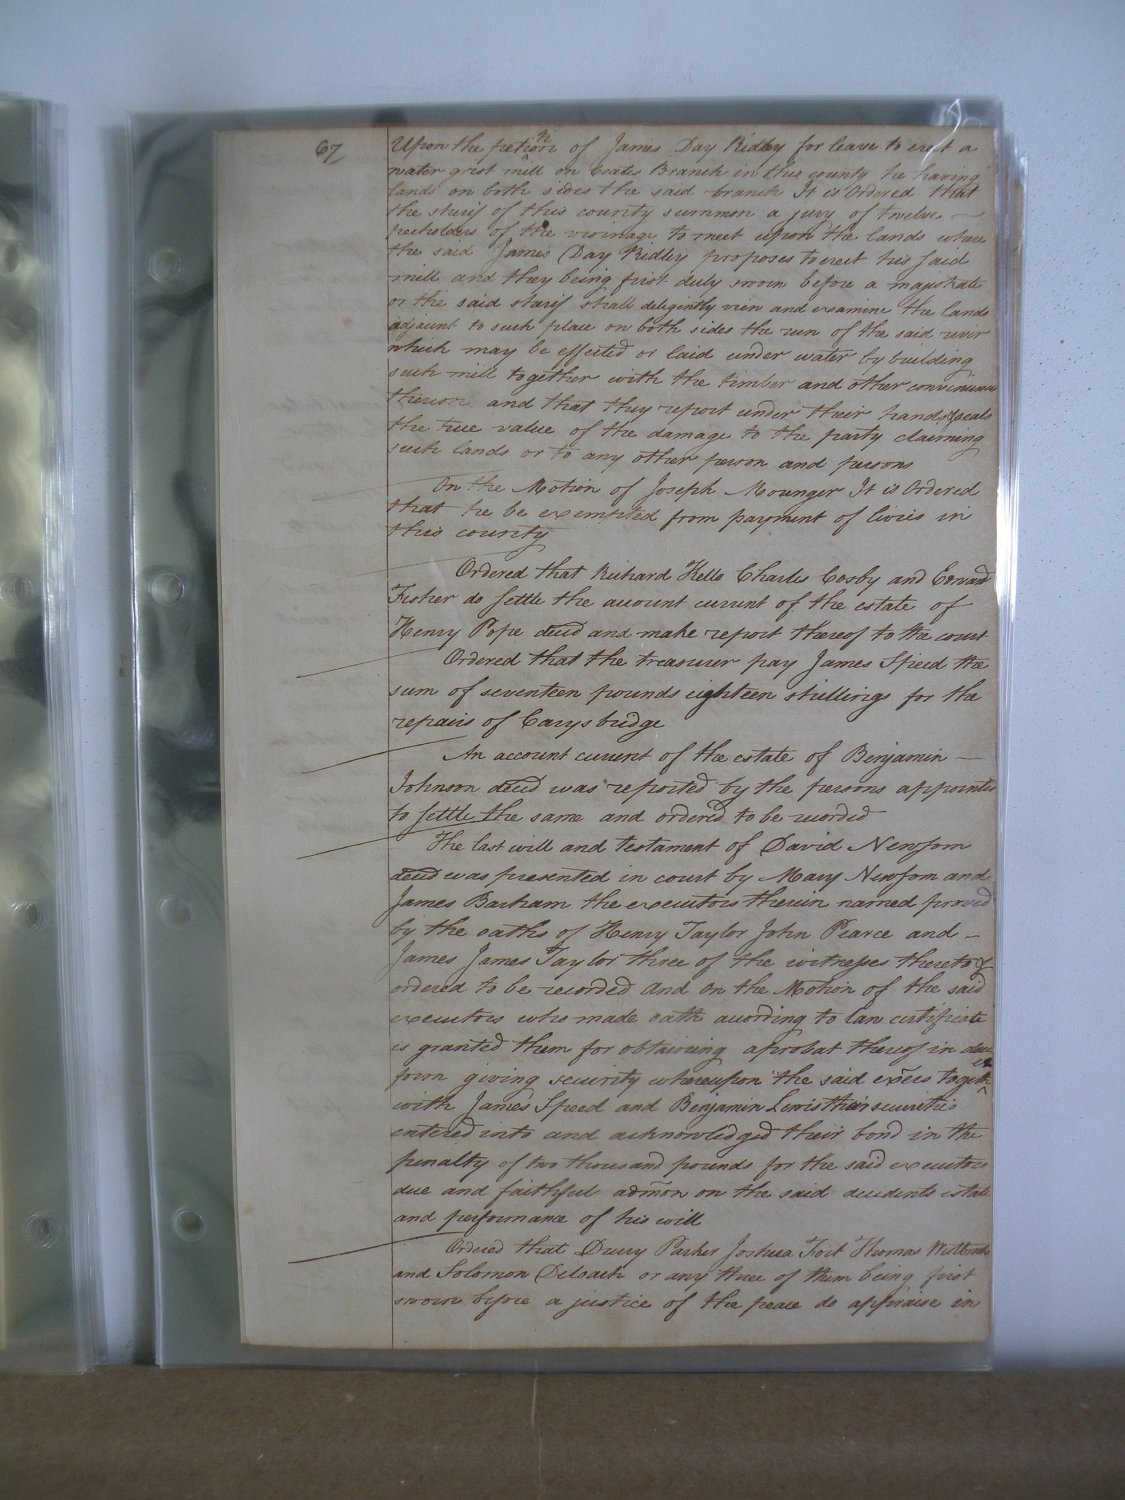 67
Upon the petion of James Day Ridley for leave to erect a
water grist mill on Coates Branch in this county he having
lands on both sides the said branch It is Ordered that
the sherif of this county summon a jury of twelve —
freeholders of the vicinage to meet upon the lands where
the said James Day Ridley proposes to erect his said
mill and they being first duly sworn before a majistrate
or the said sherif shall diligently view and examine the lands
adjacent to such place on both sides the run of the said
which may be effected or laid under water by building
such mill together with the timber and other
thereon and that they report under their hands & seals
the true value of the damage to the party claiming
such lands or to any other person and persons
On the Motion of Joseph Mounger It is Ordered
that he be exempted from payment of livies in
this county
Ordered that Richard Kello Charles Cosby and
Fisher do settle the account current of the estate of
Henry Pope decd and make report thereof to the court
Ordered that the treasurer pay James Speed the
sum of seventeen pounds eighteen shillings for the
repairs of Carys bridge
An account current of the estate of Benjamin —
Johnson decd was reported by the persons appointed
to settle the same and ordered to be recorded
The last will and testament of David Newsom
decd was presented in court by Mary Newsom and
James Barham the executors therein named proved
by the oaths of Henry Taylor John Pearce and —
James James Taylor three of the witnesses thereto &
ordered to be recorded and on the Motion of the said
executors who made oath according to law certificate
is granted them for obtaining a probat thereof in due
form giving security whereupon the said exers together
with James Speed and Benjamin Lewis their securities
entered into and acknowledged their bond in the
penalty of two thousand pounds for the said executors
due and faithful admon on the said decedents estate
and performance of his will
Ordered that Drury Parker Joshua Fort Thomas
and Solomon Deloach or any three of them being first
sworn before a justice of the peace do appraise in